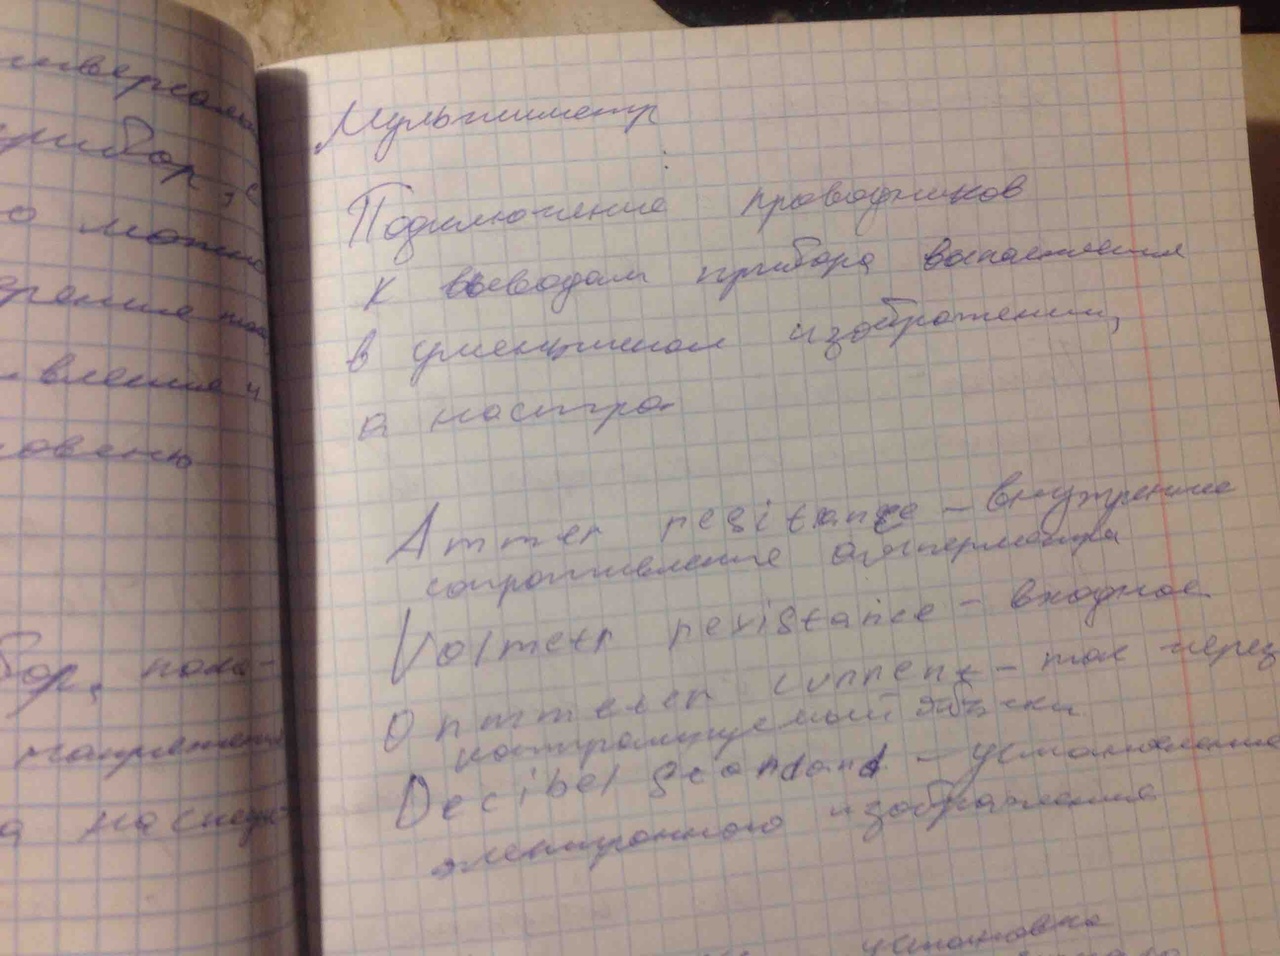 иверсаль
прибор, с
о можно
ерение тока,
ивление и
овеню
бор, пока-
напряжение
а на следу-
Мультиметр
Подключение проводников
к выводам прибора выполняется
в уменьшеном изображении,
а настра-
Ammer resistance – внутренние
сопротивление амперметра
Volmetr rexistance – входное
Ommeter current – ток через
контролируемый объект
Decibel Standard – установление
электронного изображения
установка